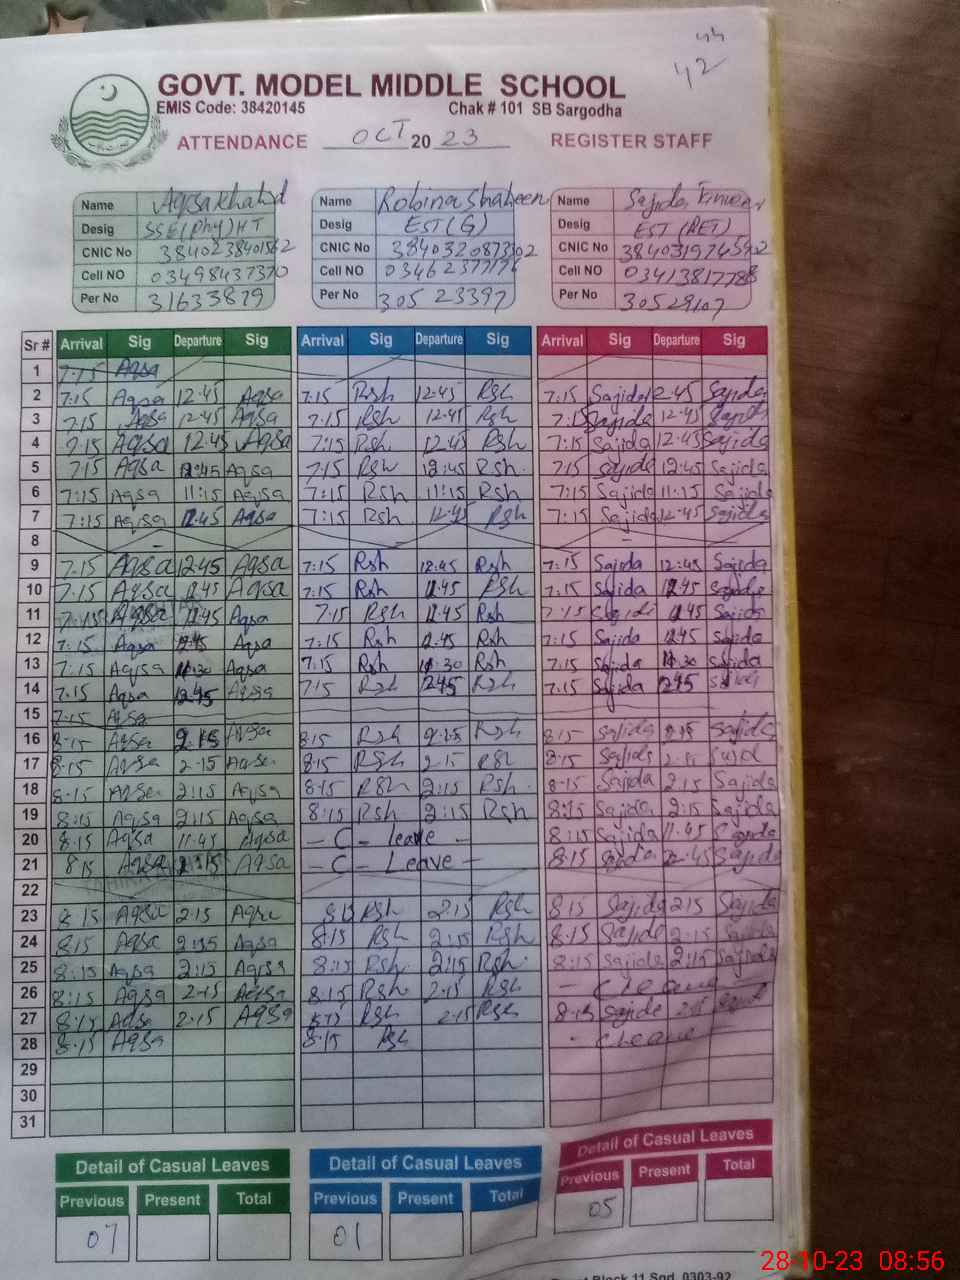 42
GOVT. MODEL MIDDLE SCHOOL
EMIS Code: 38420145 Chak # 101 SB Sargodha
ATTENDANCE OCT 2023 REGISTER STAFF
Name Aqsa Khalid Name Robina Shaheen Name Sajida
Desig SSE(Phy)HT Desig EST(G) Desig EST
CNIC No CNIC No CNIC No
Cell NO 03498437370 Cell NO Cell NO
Per No 31633879 Per No 30523397 Per No 30529107
Sr # Arrival Sig Departure Sig Arrival Sig Departure Sig Arrival Sig Departure Sig
1 7:15 Aqsa
2 7:15 Aqsa 12:45 Aqsa 7:15 Rsh 12:45 Rsh 7:15 Sajida 12:45 Sajida
3 7:15 Aqsa 12:45 Aqsa 7:15 Rsh 12:45 Rsh 7:15 Sajida 12:45
4 7:15 Aqsa 12:45 Aqsa 7:15 Rsh 12:45 Rsh 7:15 Sajida 12:45 Sajida
5 7:15 Aqsa 12:45 Aqsa 7:15 Rsh 12:45 Rsh. 7:15 Sajida 12:45 Sajida
6 7:15 Aqsa 11:15 Aqsa 7:15 Rsh 11:15 Rsh 7:15 Sajida 11:15 Sajida
7 7:15 Aqsa 12:45 Aqsa 7:15 Rsh 12:45 Rsh 7:15 Sajida 12:45 Sajida
8 - - -
9 7:15 Aqsa 12:45 Aqsa 7:15 Rsh 12:45 Rsh 7:15 Sajida 12:45 Sajida
10 7:15 Aqsa 12:45 Aqsa 7:15 Rsh 12:45 Rsh 7:15 Sajida 12:45 Sajida
11 7:15 Aqsa 12:45 Aqsa 7:15 Rsh 12:45 Rsh 7:15 12:45 Sajida
12 7:15 Aqsa 12:45 Aqsa 7:15 Rsh 12:45 Rsh 7:15 Sajida 12:45 Sajida
13 7:15 Aqsa 11:30 Aqsa 7:15 Rsh 11:30 Rsh 7:15 Sajida 11:30 Sajida
14 7:15 Aqsa 12:45 Aqsa 7:15 Rsh 12:45 Rsh 7:15 Sajida 12:45
15 7:15 Aqsa
16 8:15 Aqsa 2:15 Aqsa 8:15 Rsh 2:15 Rsh 8:15 Sajida 2:15 Sajida
17 8:15 Aqsa 2:15 Aqsa 8:15 Rsh 2:15 Rsh 8:15 2:15
18 8:15 Aqsa 2:15 Aqsa 8:15 Rsh 2:15 Rsh. 8:15 Sajida 2:15 Sajida
19 8:15 Aqsa 2:15 Aqsa 8:15 Rsh 2:15 Rsh 8:15 Sajida 2:15 Sajida
20 8:15 Aqsa 11:45 Aqsa - C - leave - 8:15 Sajida 11:45 Sajida
21 8:15 Aqsa 2:15 Aqsa - C - Leave - 8:15 Sajida 12:45 Sajida
22
23 8:15 Aqsa 2:15 Aqsa 8:15 Rsh 2:15 Rsh 8:15 Sajida 2:15 Sajida
24 8:15 Aqsa 2:15 Aqsa 8:15 Rsh 2:15 Rsh 8:15 Sajida 2:15 Sajida
25 8:15 Aqsa 2:15 Aqsa 8:15 Rsh. 2:15 Rsh. 8:15 Sajida 2:15 Sajida
26 8:15 Aqsa 2:15 Aqsa 8:15 Rsh 2:15 Rsh - C leave
27 8:15 Aqsa 2:15 Aqsa 8:15 Rsh 2:15 Rsh 8:15 Sajida 2:15
28 8:15 Aqsa 8:15 Rsh - C leave
29
30
31
Detail of Casual Leaves Detail of Casual Leaves Detail of Casual Leaves
Previous Present Total Previous Present Total Previous Present Total
07 01 05
Block 11 Sgd. 0303-92
28-10-23 08:56